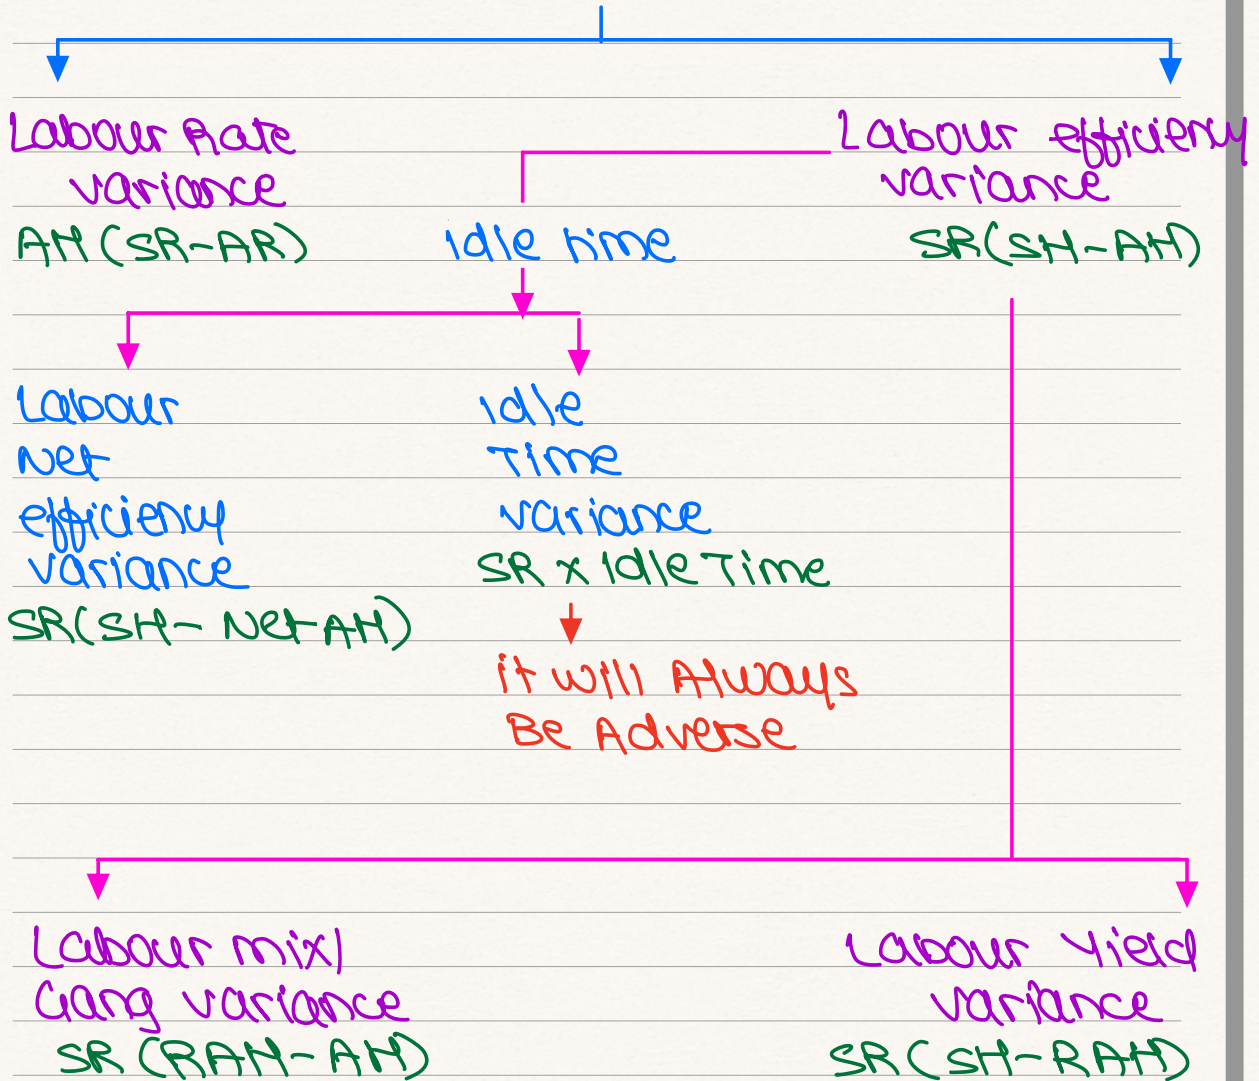 Labour Rate
variance
AH (SR-AR)
Labour efficiency
variance
SR(SH-AH)
idle time
Labour
Net
efficiency
variance
SR(SH- Net AH)
idle
Time
variance
SR x Idle Time
it will Always
Be Adverse
Labour mix/
Gang variance
SR (RAH-AH)
Labour Yield
variance
SR (SH-RAH)